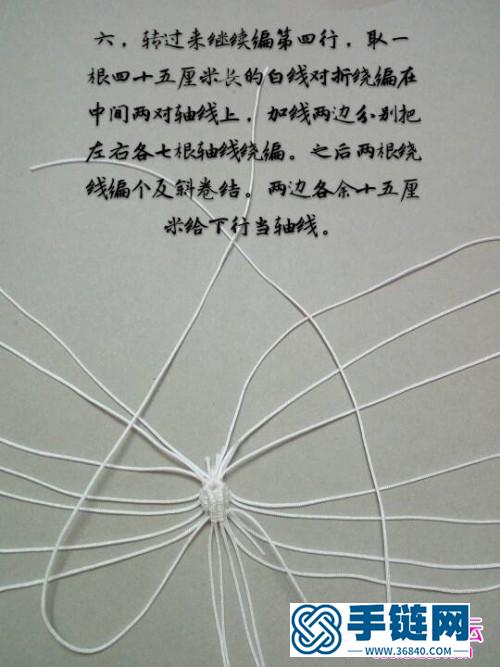 六，转过来继续编第四行，取一
根四十五厘米长的白线对折绕编在
中间两对轴线上，加线两边分别把
左右各七根轴线绕编。之后两根绕
线编个反斜卷结。两边各余十五厘
米给下行当轴线。
坛
手链网
www.36840.com